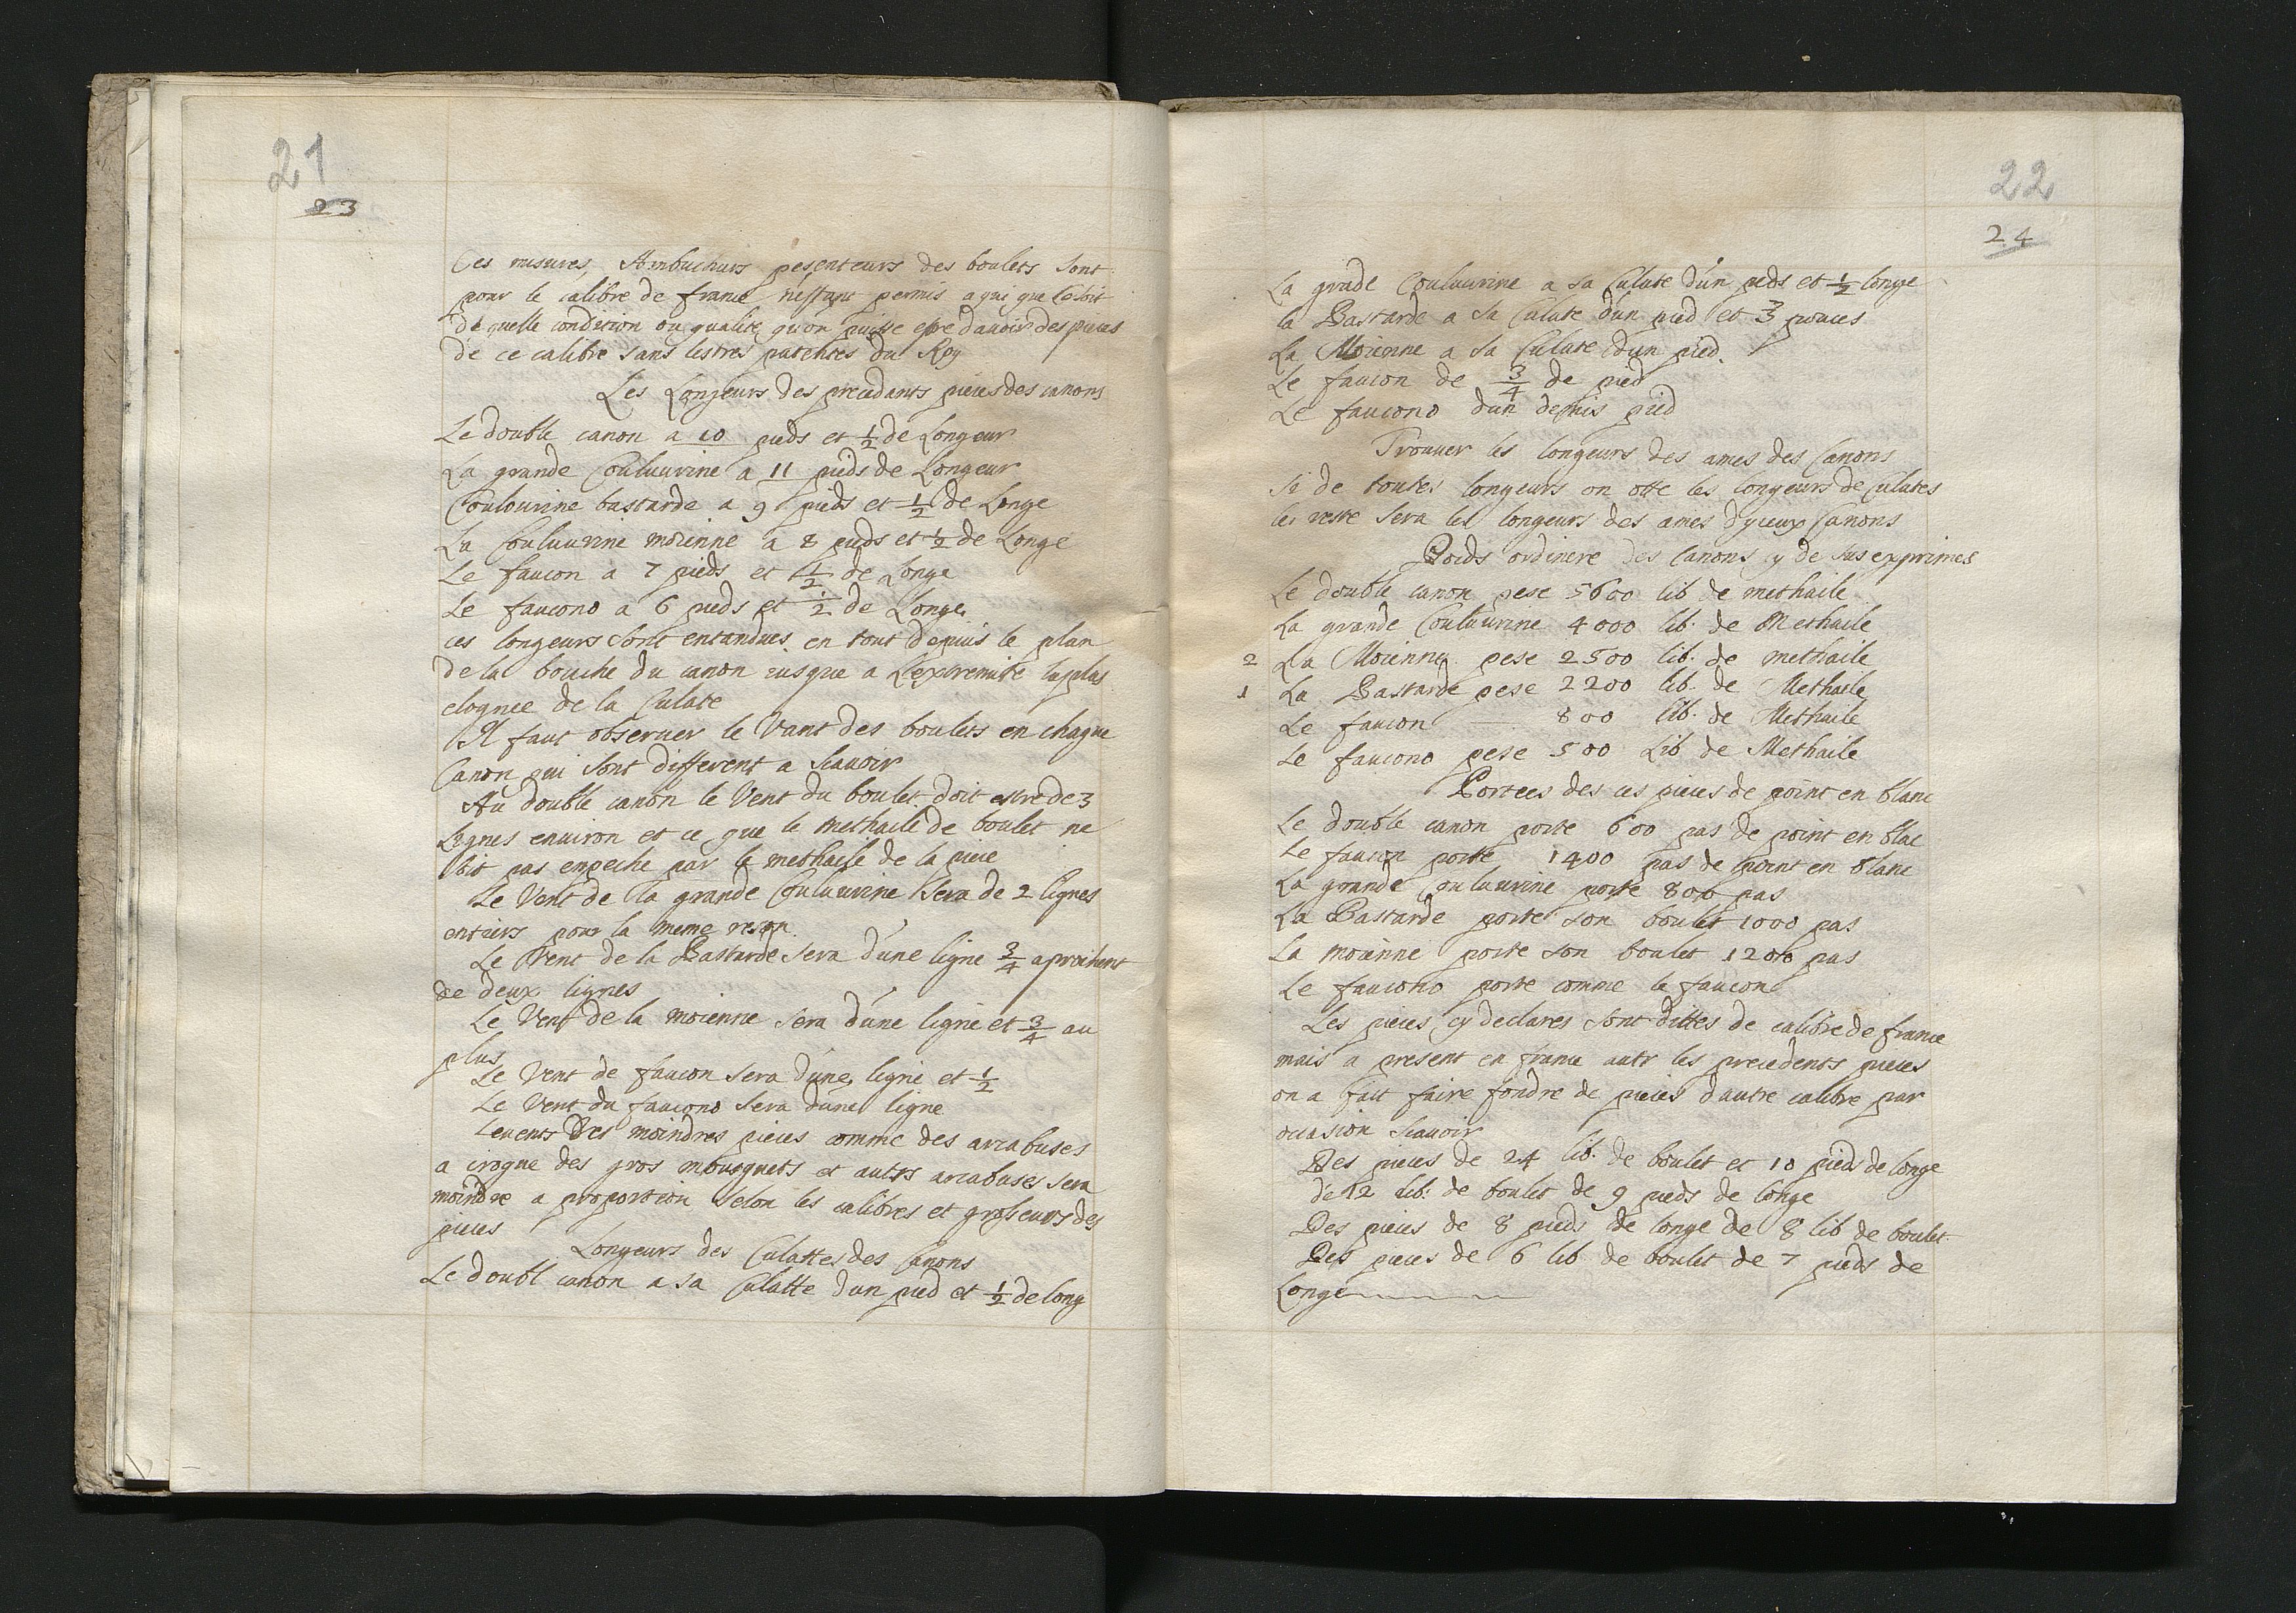 21
23
Ces mesures, Ambuchurs pesenteurs des boulets sont
pour le calibre de france n'estant permis a qui que ce soit
de quelle condition ou qualite qu'on puisse estre davoir des pieces
de ce calibre sans lestres patentes du Roy
Les Longeurs des precedants pieces des canons
Le double canon a 10 pieds et 1/2 de Longeur
La grande Couluurine a 11 pieds de Longeur
Coulourine bastarde a 9 pieds et 1/2 de Longe
La Couluurine moienne a 8 pieds et 1/2 de Longe
Le faucon a 7 pieds et 1/2 de Longe
Le faucono a 6 pieds et 1/2 de Longe
ces longeurs sont entandues en tout depuis le plan
de la bouche du canon jusque a L'extremite la plus
elognee de la Culate
Il faut obseruer le Vant des boulets en chaque
Canon qui sont different a Scauoir
Au double canon le Vent du boulet doit estre de 3
Lignes enuiron et ce que le methaile de boulet ne
soit pas empeche par le methaile de la piece
Le Vent de la grande Couluurine Sera de 2 lignes
entiers pour la meme reson
Le Vent de la Bastarde sera d'une ligne 3/4 aprochant
de deux lignes
Le Vent de la moienne sera d'une ligne et 3/4 au
plus
Le Vent de faucon sera d'une ligne et 1/2
Le Vent du faucono sera d'une ligne
Leuents Des moindres pieces comme des arcabuses
a croque des gros mousquets et autrs arcabuses sera
moindre a proportion selon les calibres et groseurs des
pieces
Longeurs des Culattes des Canons
Le doubl canon a sa Culatte d'un pied et 1/2 de long
22
24
La grade Couluurine a sa Culate d'un pieds et 1/2 longe
la Bastarde a sa Culate d'un pied et 3 pouces
La Moienne a sa Culate d'un pied.
Le faucon de 3/4 de pied
Le faucono d'un demis pied
Trouuer les longeurs des ames des Canons
Si de toutes longeurs on otte les longeurs de Culates
les reste sera les longeurs des ames d'yceux Canons
Poids ordinere des Canons cy de sus exprimes
Le double canon pese 5600 lib de methaile
La grande Couluurine 4000 lib. de Methaile
2 La Moienne pese 2500 lib. de methaile
1 La Bastarde pese 2200 lib. de Methaile
Le faucon — 800 lib. de Methaile
Le faucono pese 500 Lib de Methaile
Portees des ces pieces de point en blanc
Le double canon porte 600 pas de point en blac
Le faucon porte 1400 pas de point en blanc
La grande Couluurine porte 800 pas
La Bastarde porte son boulet 1000 pas
La moienne porte son boulet 1200 pas
Le faucono porte comme le faucon
Les pieces cy declares sont dittes de calibre de france
mais a present en france autr les precedents pieces
on a fait faire fondre de pieces d'autre calibre par
occasion Scauoir
Des pieces de 24 lib. de boulet et 10 pieds de longe
de 12 lib: de boulet de 9 pieds de longe
Des pieces de 8 pieds de longe de 8 lib de boulet.
Des pieces de 6 lib. de boulet de 7 pieds de
Longe